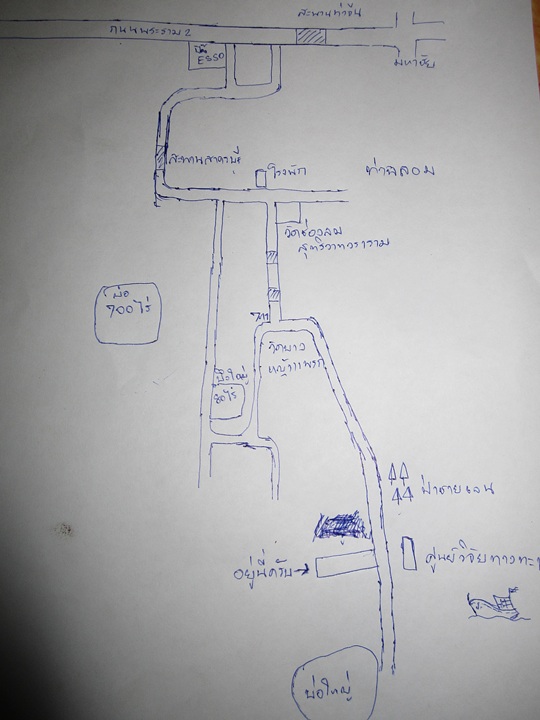 สะพานท่าจีน
ถนนพระราม 2
ปั๊ม
ESSO
มหาชัย
สะพานสาครบุรี
โรงพัก
ท่าฉลอม
วัดช่องลม
สุทธิวาตวราราม
บ่อ
700 ไร่
วัดบาง
หญ้าแพรก
บ่อใหญ่
80 ไร่
ป่าชายเลน
ศูนย์วิจัยทางทะ
อยู่นี่ครับ
บ่อใหญ่